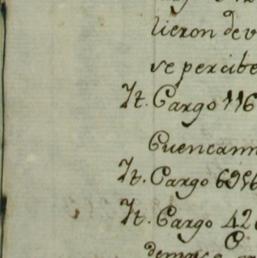 lieron de v
se percibe
It. Cargo 116
Cuencann
It. Cargo 6956
It. Cargo 42